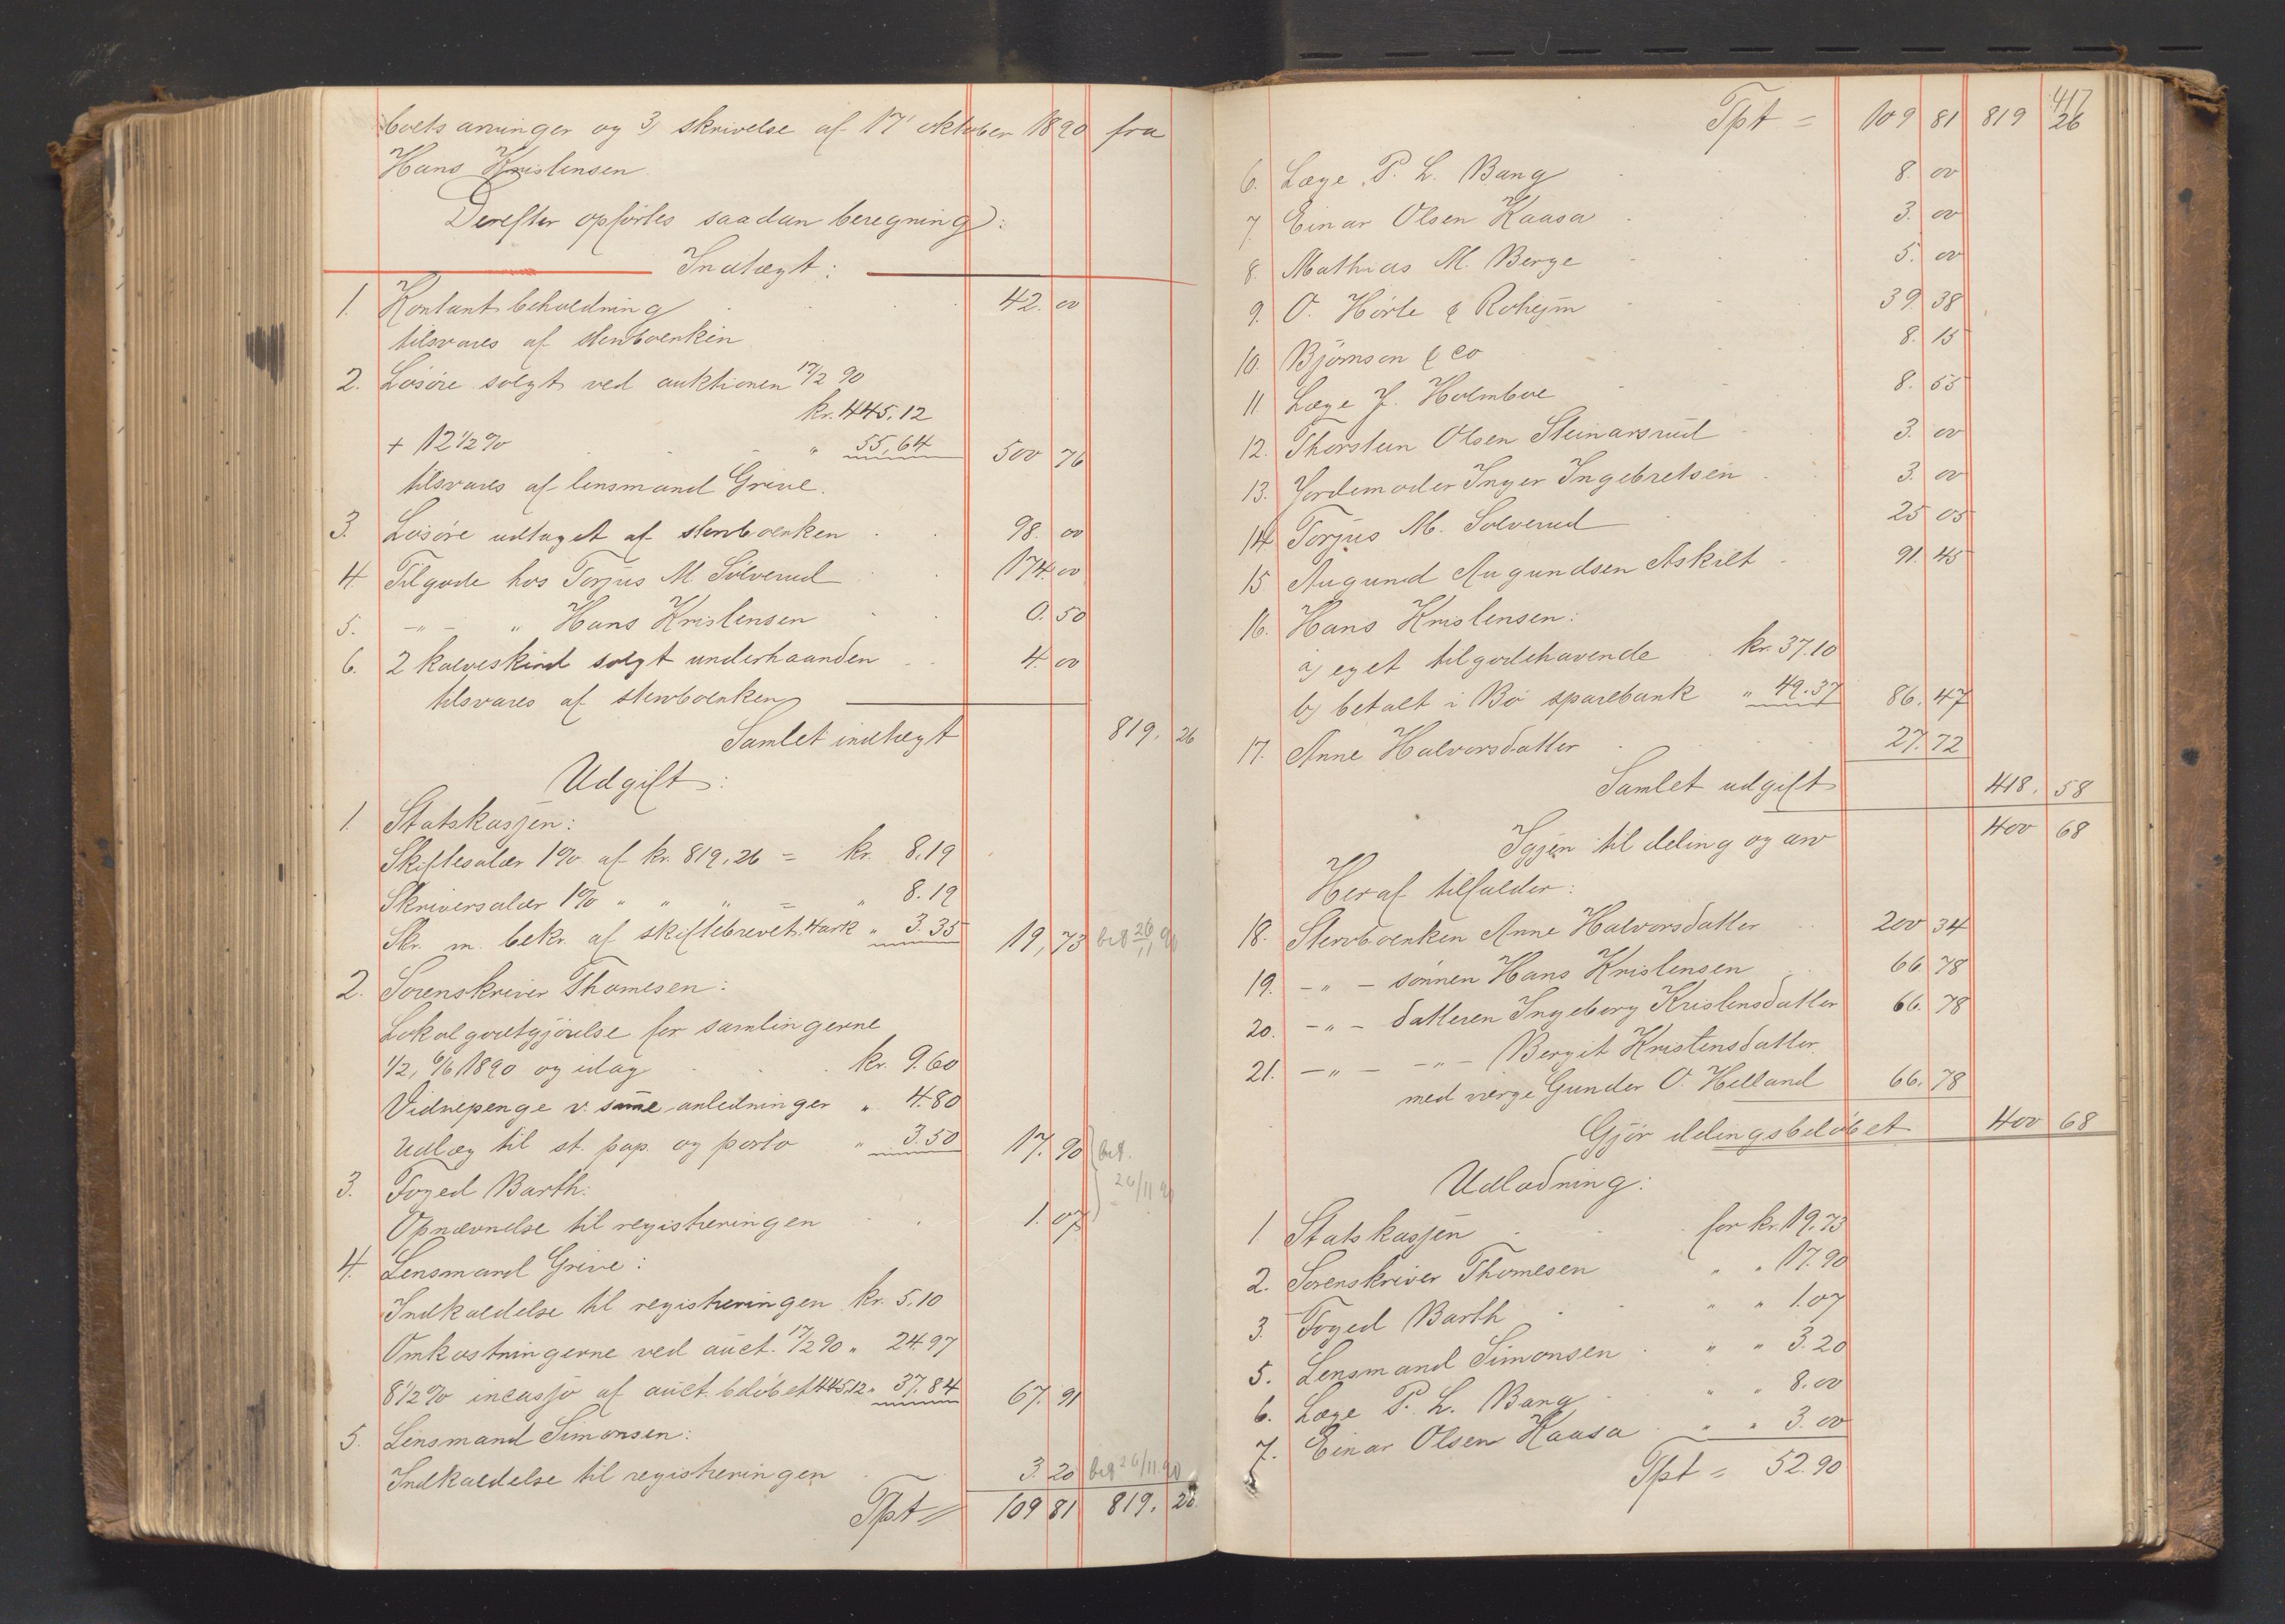 boets arvinger og 3, skrivelse af 17' oktober 1890 fra
Hans Kristensen.
Derefter opførtes saadan beregning:
Indtægt:
1. Kontant beholdning 42. 00
tilsvares af stervboenken
2. Løsøre solgt ved auktionen 17/2 90
kr. 445.12
+ 12 1/2 % " 55,64 500 76
tilsvares af lensmand Grive.
3. Løsøre udtaget af stervboenken 98. 00
4. Tilgode hos Torjus M Sølverud 174. 00
5. -"- " Hans Kristensen 0. 50
6. 2 kalveskind solgt underhaanden 4. 00
tilsvares af stervboenken
Samlet indtægt 819. 26
Udgift:
1. Statskassen:
Skiftesalær 1 % af kr. 819,26 = kr. 8,19
Skriversalær 1 % " " " = " 8.19
Skr. m. bekr. af skiftebrevet 4 ark " 3.35 19, 73 bet 26/11 90
2. Sorenskriver Thomesen:
Lokalgodtgjørelse for samlingerne
1/2, 6/6 1890 og idag kr. 9.60
Vidnepenge v. same anledninger " 4.80
Udlæg til st. pap. og porto " 3.50 17. 90 bet.
3. Foged Barth: 26/11 90
Opnævnelse til registreringen 1. 07
4. Lensmand Grive:
Indkaldelse til registreringen kr. 5.10
Omkostningerne ved auct. 17/2 90 " 24.97
8 1/2 % incasso af auct. beløbet 445.12 " 37.84 67. 91
5. Lensmand Simonsen:
Indkaldelse til registreringen 3. 20 bet 26/11.90
Tpt = 109 81 819. 26
417
Tpt = 109 81 819 26
6. Læge P. L. Bang 8. 00
7. Einar Olsen Kaasa 3. 00
8. Mathias M. Berge 5. 00
9. O. Hørte & Rohejm 39. 38
10. Bjørnson & Co 8. 15
11 Læge J. Holmboe 8. 55
12. Thorstein Olsen Steinarsrud 3. 00
13. Jordemoder Inger Ingebretsen 3. 00
14 Torjus M. Solverud 25 05
15 Augund Augundsen Askilt 91. 45
16. Hans Kristensen:
a) eget tilgodehavende kr. 37.10
b) betalt i Bø sparebank " 49.37 86. 47
17. Anne Halvorsdatter 27. 72
Samlet udgift 418. 58
Igjen til deling og arv 400 68
Heraf tilfalder:
18. Stervboenken Anne Halvorsdatter 200 34
19. -"- sønnen Hans Kristensen 66 78
20. -"- datteren Ingeborg Kristensdatter 66. 78
21. -"- -"- Bergit Kristensdatter
med værge Gunder O. Helland 66. 78
Gjør delingsbeløbet 400 68
Udlodning:
1 Statskassen for kr. 19.73
2. Sorenskriver Thomesen " " 17.90
3. Foged Barth " " 1.07
5. Lensmand Simonsen " " 3.20
6. Læge P. L. Bang " " 8.00
7. Einar Olsen Kaasa " " 3.00
Tpt = 52.90